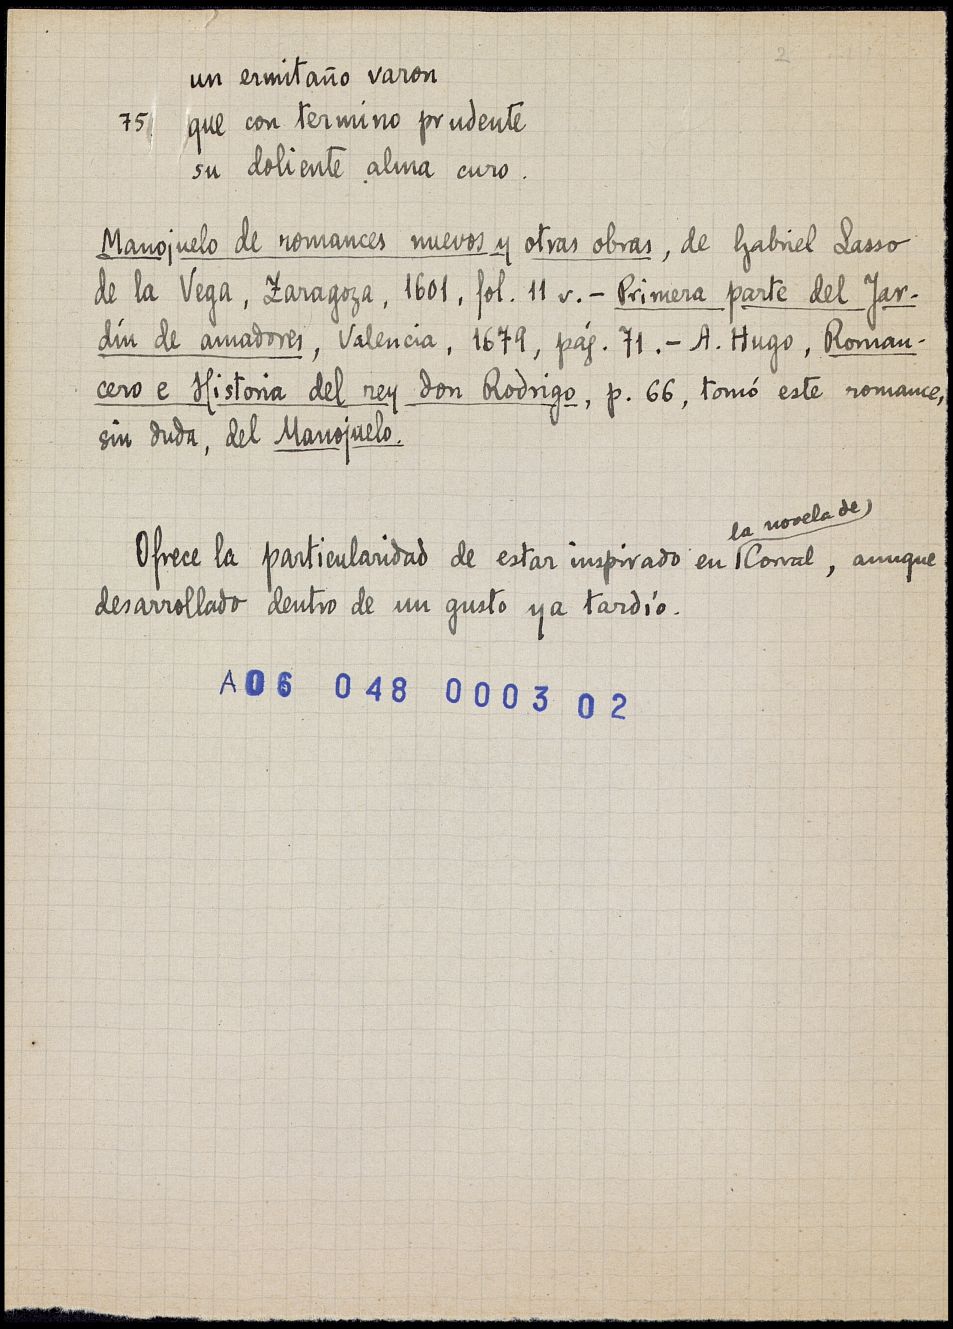 2
un ermitaño varon
75 que con termino prudente
su doliente alma curo.
Manojuelo de romances nuevos y otras obras, de Gabriel Lasso
de la Vega, Zaragoza, 1601, fol. 11 v. - Primera parte del Jar-
dín de amadores, Valencia, 1679, pág. 71. - A. Hugo, Roman-
cero e Historia del rey don Rodrigo, p. 66, tomó este romance,
sin duda, del Manojuelo.
la novela de
Ofrece la particularidad de estar inspirado en Corral, aunque
desarrollado dentro de un gusto ya tardío.
A06 048 0003 02